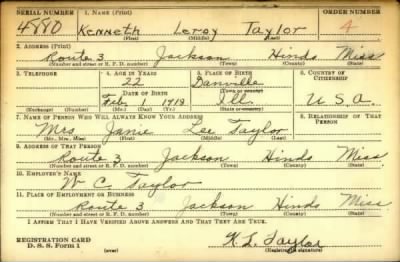 SERIAL NUMBER 1. NAME (Print) ORDER NUMBER
4880 Kenneth Leroy Taylor 4
(First) (Middle) (Last)
2. ADDRESS (Print)
Route 3 Jackson Hinds Miss
(Number and street or R. F. D. number) (Town) (County) (State)
3. TELEPHONE 4. AGE IN YEARS 5. PLACE OF BIRTH 6. COUNTRY OF CITIZENSHIP
22 Danville
DATE OF BIRTH (Town or county)
Feb 1918 Ill. U.S.A.
(Exchange) (Number) (Mo.) (Day) (Yr.) (State or country)
7. NAME OF PERSON WHO WILL ALWAYS KNOW YOUR ADDRESS 8. RELATIONSHIP OF THAT PERSON
Mrs Janie Lee Taylor
(Mr., Mrs., Miss) (First) (Middle) (Last)
9. ADDRESS OF THAT PERSON
Route 3 Jackson Hinds Miss
(Number and street or R. F. D. number) (Town) (County) (State)
10. EMPLOYER'S NAME
W C Taylor
11. PLACE OF EMPLOYMENT OR BUSINESS
Route 3 Jackson Hinds Miss
(Number and street or R. F. D. number) (Town) (County) (State)
I AFFIRM THAT I HAVE VERIFIED ABOVE ANSWERS AND THAT THEY ARE TRUE.
REGISTRATION CARD
D. S. S. Form 1 (over) K. L. Taylor
(Registrant's signature)